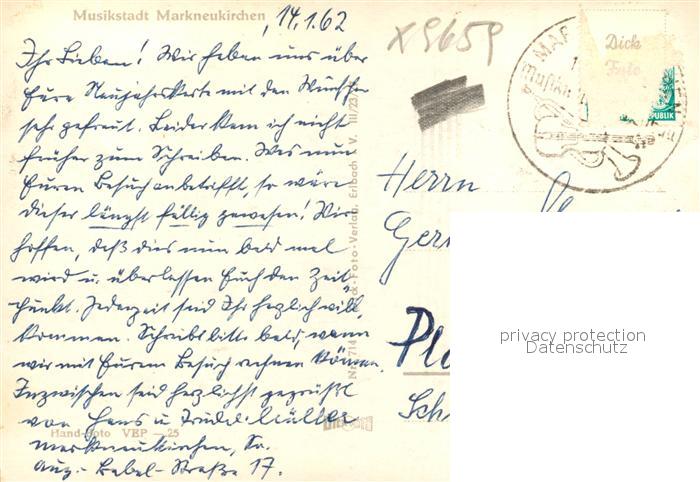 Musikstadt Markneukirchen
14.1.62
Ihr Lieben! Wir haben uns über
Eure Neujahrskarte mit den Wünschen
sehr gefreut. Leider kam ich nicht
früher zum Schreiben. Was nun
Euren Besuch anbetrifft, so wäre
dieser längst fällig gewesen! Wir
hoffen, daß dies nun bald mal
wird u. überlassen Euch den Zeit-
punkt. Jederzeit seid Ihr herzlich will-
kommen. Schreibt bitte bald, wann
wir mit Eurem Besuch rechnen können.
Inzwischen seid herzlichst gegrüßt
von Hans u. Trudel Müller
Markneukirchen, Sa.
Aug.-Bebel-Straße 17.
Hand-Foto VEP —25
ck-Foto-Verlag, Erlbach i. V. III/23
X9659
Dick
Foto
PUBLIK
Herrn
privacy protection
Datenschutz